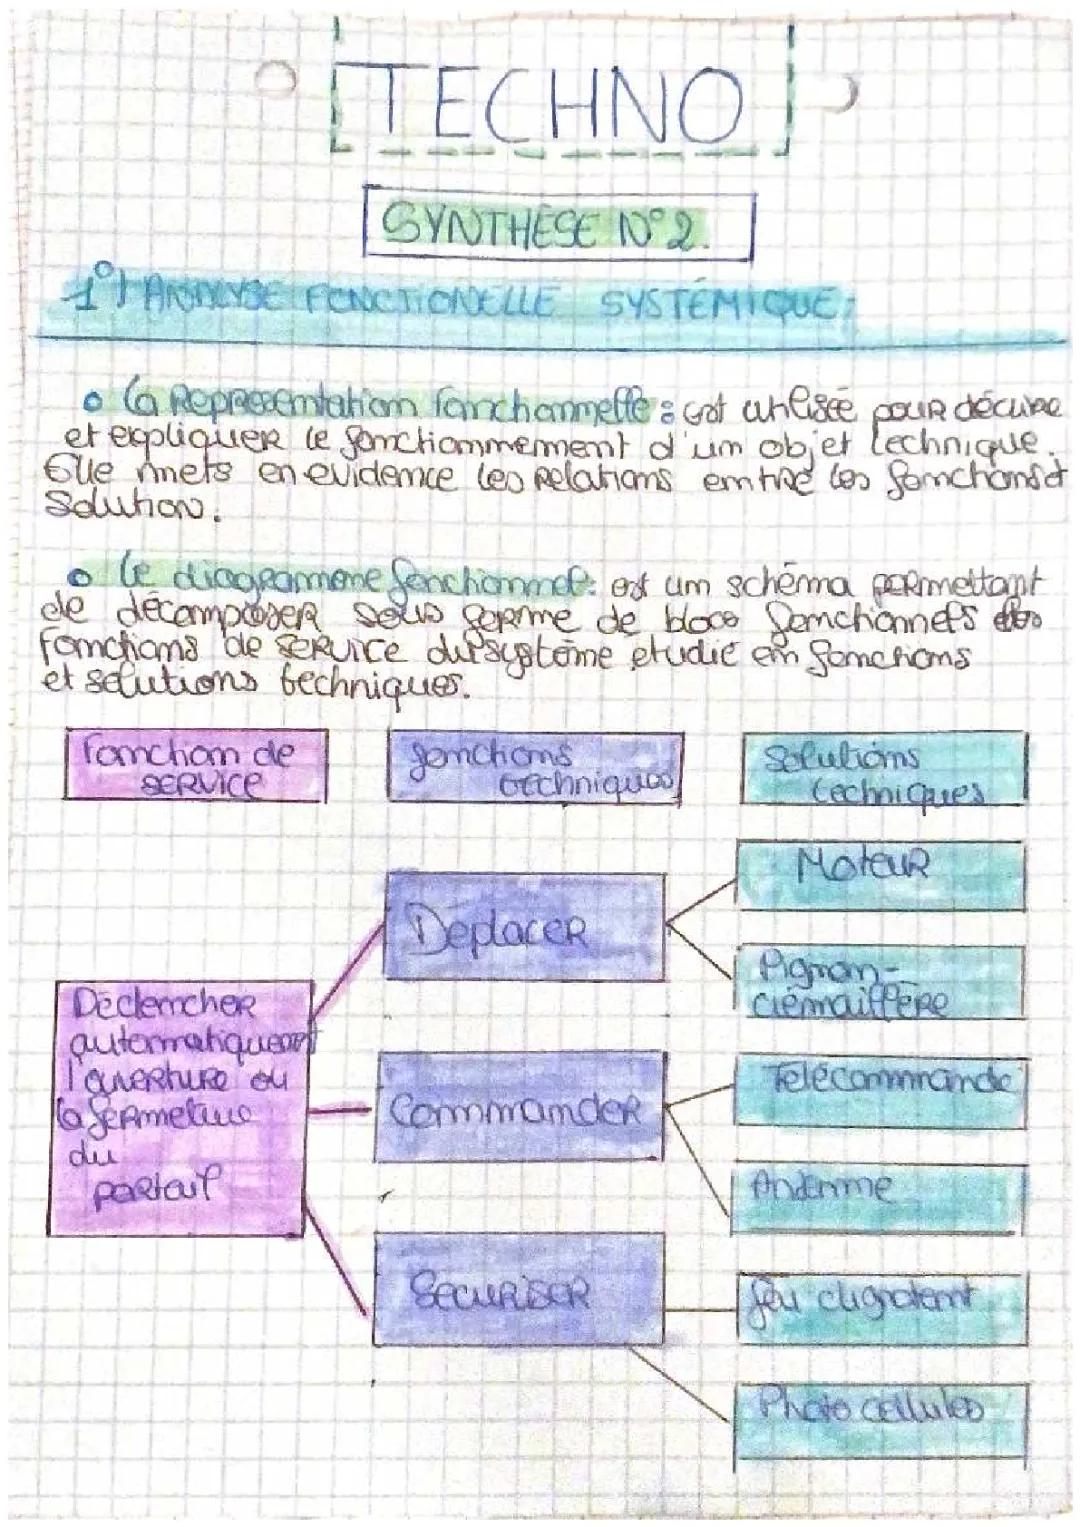 TECHNO
SYNTHÈSE N°2.
1°) ANALYSE FONCTIONELLE SYSTÉMIQUE:
• la Représentation fonctionnelle : est utilisée pour décrire
et expliquer le fonctionnement d'un objet technique.
Elle mets en evidence les relations entre les fonctions et
Solution.
• le diagramme fonctionnel: est um schéma permettant
de décomposer sous forme de blocs fonctionnels des
fonctions de service du système etudié en fonctions
et solutions techniques.
fonction de
service
fonctions
techniques
Solutions
techniques
Moteur
Déplacer
Pignon-
crémaillère
Déclencher
automatiquement
l'ouverture ou
la fermeture
du
portail
Télécommande
Commander
Antenne
Sécuriser
feu clignotant
Photo cellules